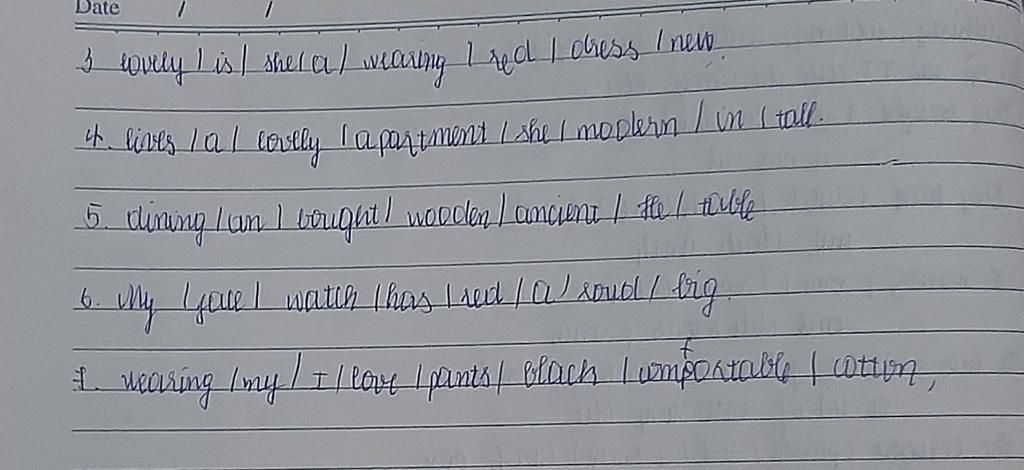 Date / /
3 lovely / is / she / a / wearing / red / dress / new.
4. lives / a / lovely / apartment / she / modern / in / tall.
5. dining / an / bought / wooden / ancient / He / table
6. My / face / watch / has / red / a / roud / big.
7. wearing / my / I / love / pants / black / comfortable / cotton,